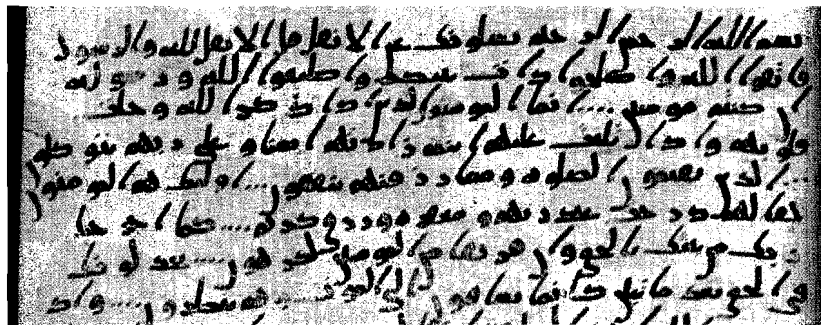 بسم الله الرحمن الرحيم يسلونك عن الانفل قل الانفل لله والرسول
فاتقوا الله واصلحوا ذات بينكم واطيعوا الله ورسوله
ان كنتم مومنين .... انما المومنون الذين اذا ذكر الله وجلت
قلوبهم واذا تليت عليهم ايته زادتهم ايمنا وعلى ربهم يتوكلو
ن .... الذين يقيمون الصلوه ومما رزقنهم ينفقون .... اولئك هم المومنون
حقا لهم درجت عند ربهم ومغفره ورزق كريم .... كما اخرجك
ربك من بيتك بالحق وان فريقا من المومنين لكرهون .... يجدلونك
في الحق بعد ما تبين كانما يساقون الى الموت وهم ينظرون .... واذ